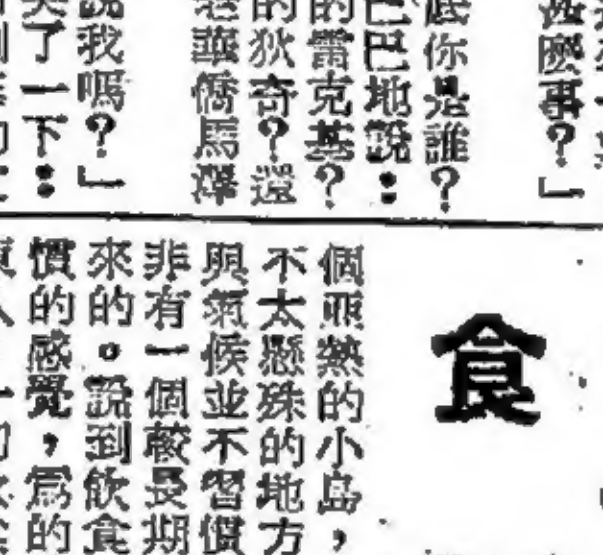 麼事？」
底你是誰？
巴巴地說：
的雷克基？
的狄奇？還
老華僑馬澤
說我嗎？」
笑了一下：
食
個亞熱的小島，
不太懸殊的地方
與氣候並不習慣
非有一個較長期
來的。說到飲食
慣的感覺，為的